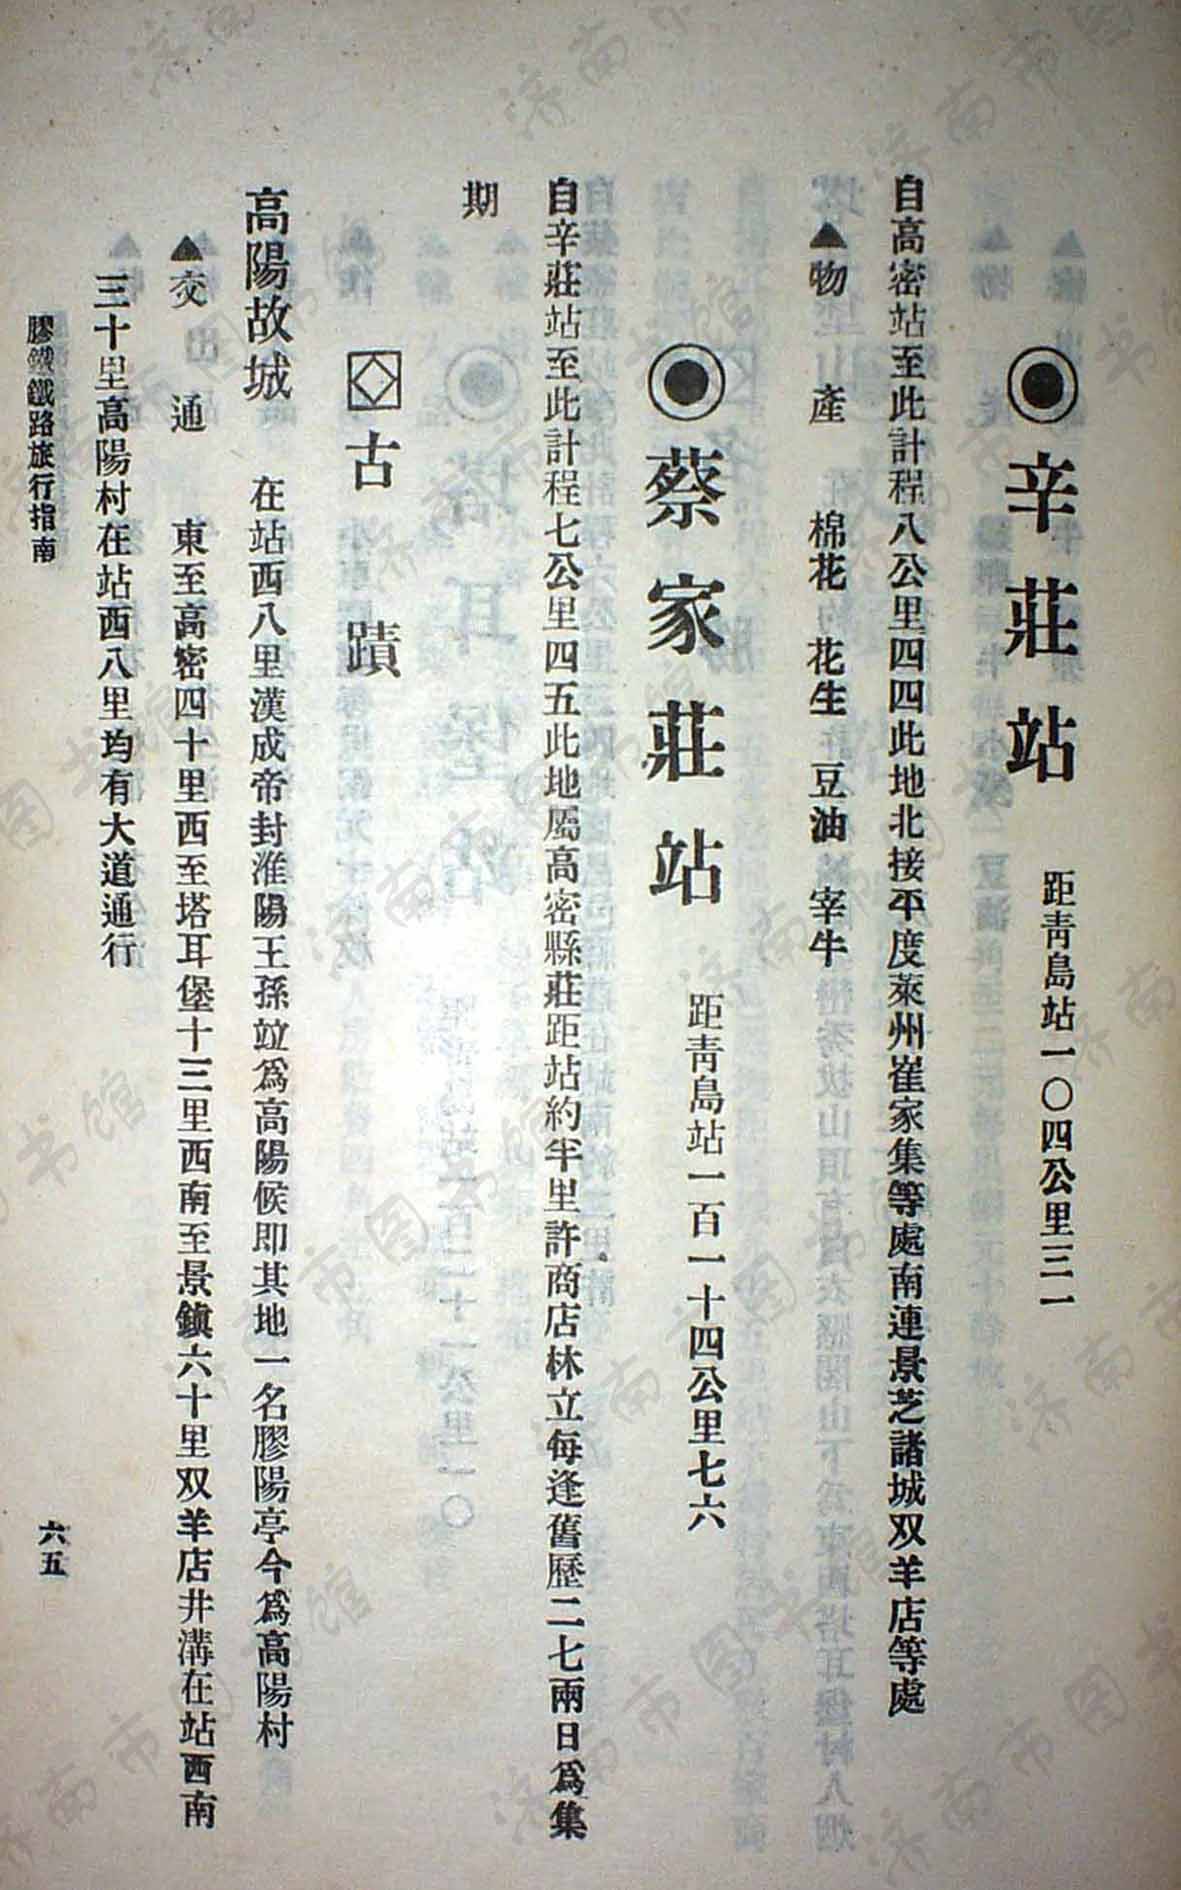 ◉辛莊站 距靑島站一〇四公里三一
自高密站至此計程八公里四四此地北接平度萊州崔家集等處南連景芝諸城双羊店等處
▲物產 棉花 花生 豆油 宰牛
◉蔡家莊站 距靑島站一百一十四公里七六
自辛莊站至此計程七公里四五此地屬高密縣莊距站約半里許商店林立每逢舊歷二七兩日爲集
期
古蹟
高陽故城 在站西八里漢成帝封淮陽王孫竝爲高陽候即其地一名膠陽亭今爲高陽村
▲交通 東至高密四十里西至塔耳堡十三里西南至景鎮六十里双羊店井溝在站西南
三十里高陽村在站西八里均有大道通行
膠濟鐵路旅行指南
六五
济南市图书馆